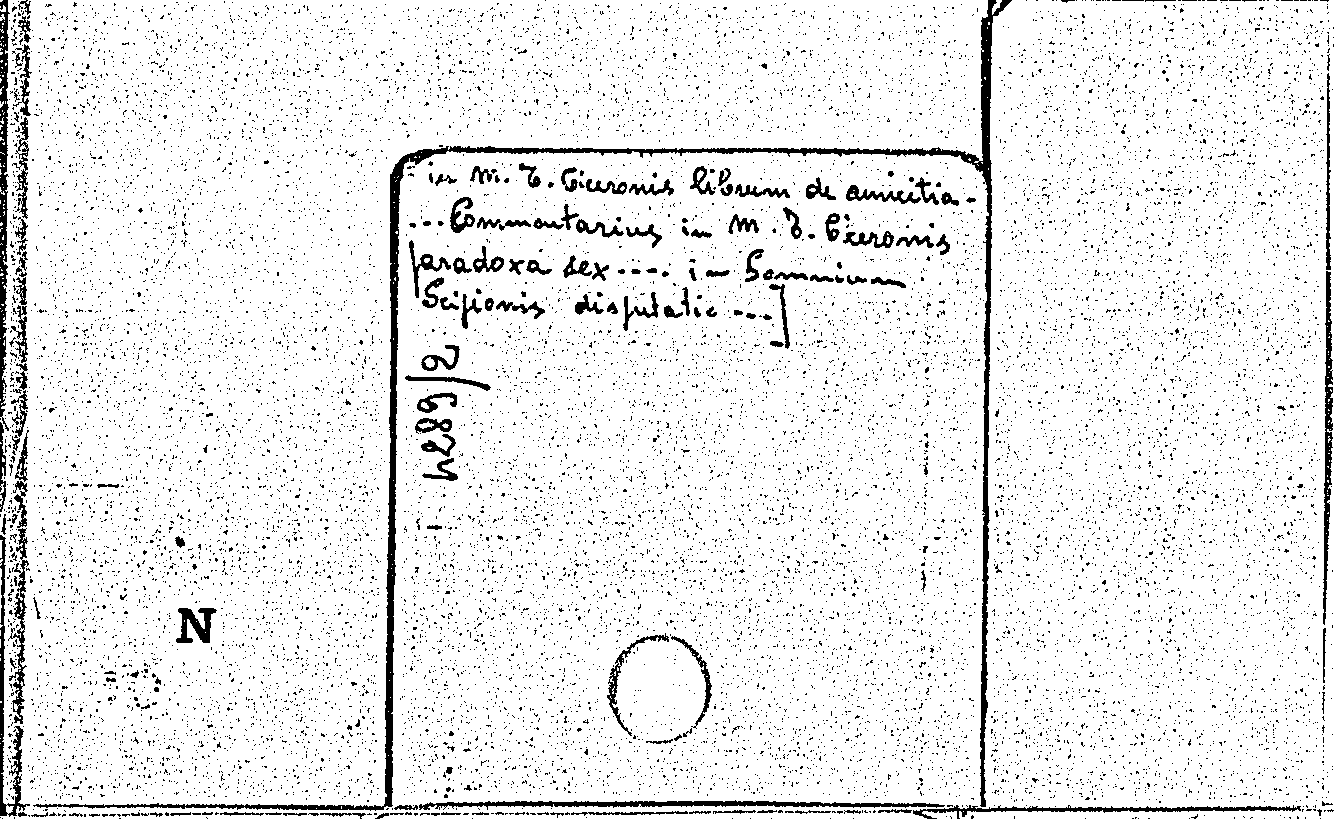 in M. T. Ciceronis librum de amicitia -
... Commentarius in M. T. Ciceronis
paradoxa sex .... in Somnium
Scipionis disputatio ...]
N